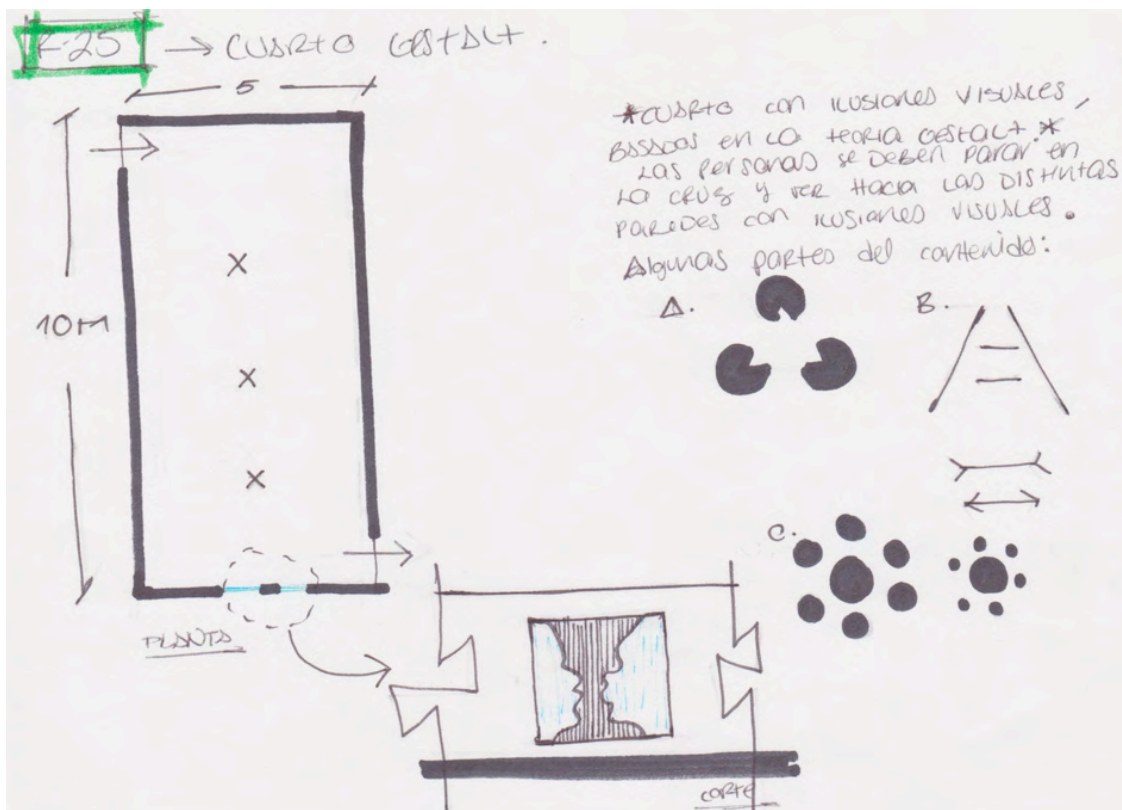 F-25 → CUARTO GESTALT.
5
10M
*CUARTO con ILUSIONES VISUALES,
BASADAS EN LA TEORIA GESTALT *
LAS PERSONAS SE DEBEN PARAR EN
LA CRUZ Y VER HACIA LAS DISTINTAS
PAREDES CON ILUSIONES VISUALES.
Algunas partes del contenido:
A.
B.
C.
PLANTA
CORTE